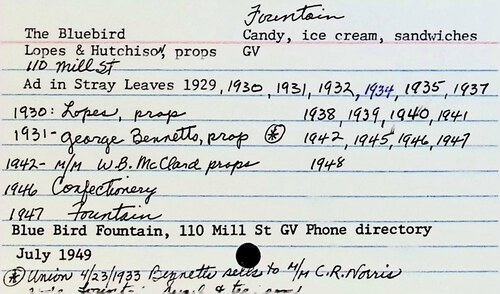 Fountain
The Bluebird Candy, ice cream, sandwiches
Lopes & Hutchison, props GV
110 Mill St
Ad in Stray Leaves 1929, 1930, 1931, 1932, 1934, 1935, 1937
1930: Lopes, prop 1938, 1939, 1940, 1941
1931- George Bennetts, prop * 1942, 1945, 1946, 1947
1942- M/M W.B. McClard props 1948
1946 Confectionery
1947 Fountain
Blue Bird Fountain, 110 Mill St GV Phone directory
July 1949
* Union 4/23/1933 Bennetts sells to M/M C.R. Norris